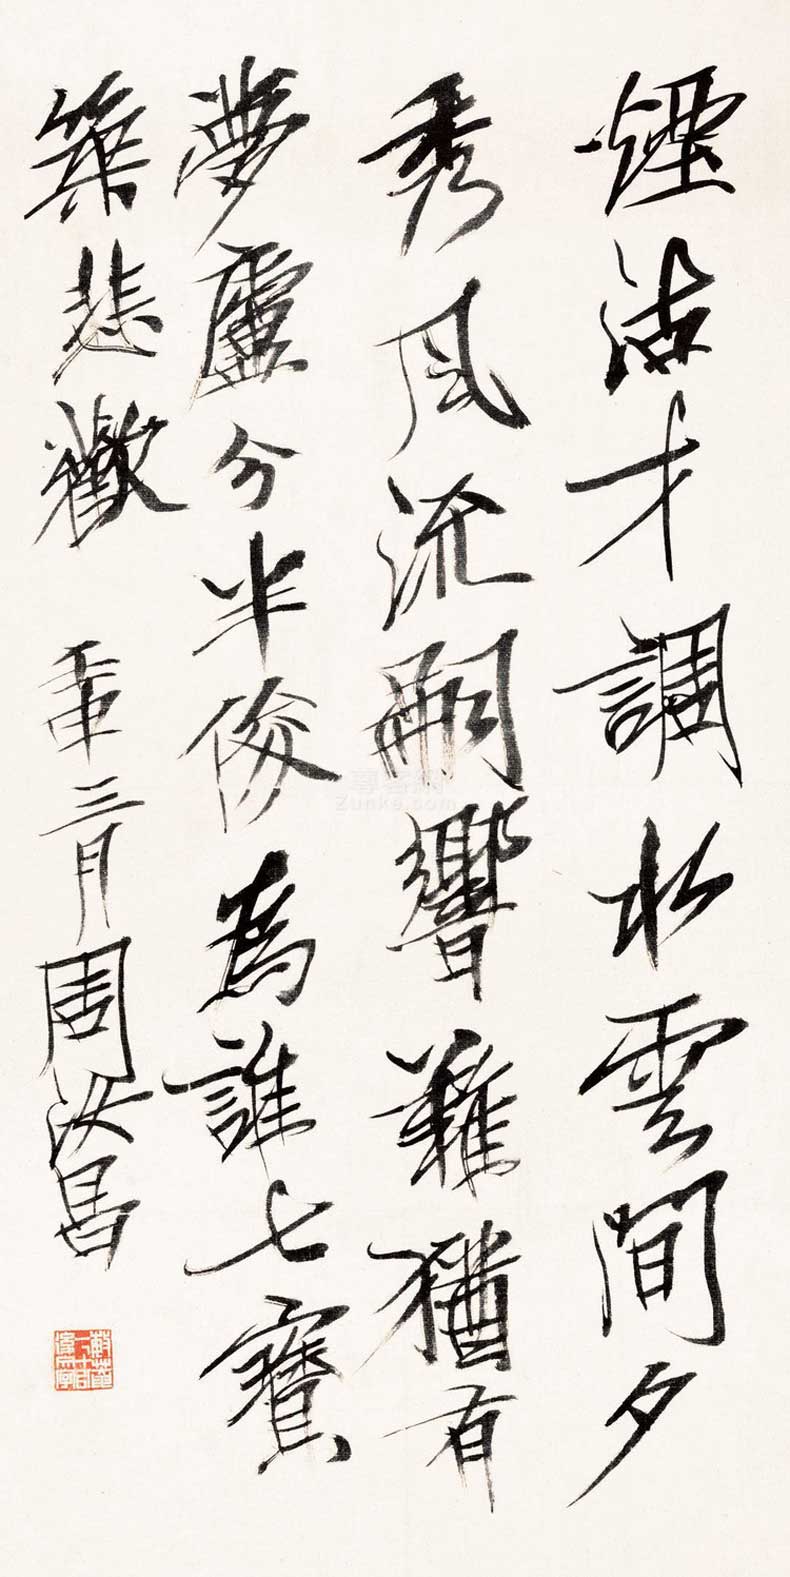 煙沽才調水雲間夕
秀風流嗣響難猶有
夢廬分半俊為誰七
寶築悲歡
三月
周汝昌
尊客網
Zunke.com